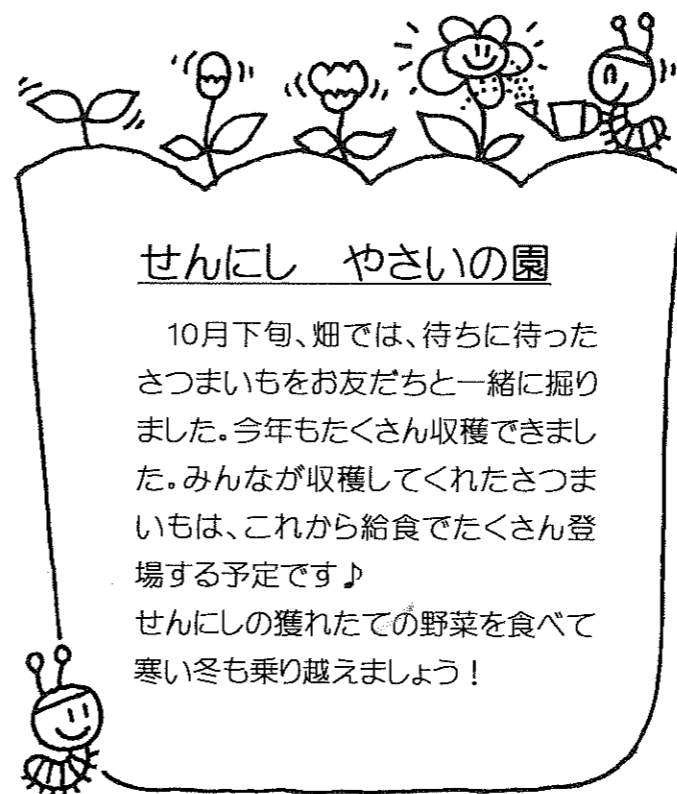 せんにし　やさいの園
　10月下旬、畑では、待ちに待った
さつまいもをお友だちと一緒に掘り
ました。今年もたくさん収穫できまし
た。みんなが収穫してくれたさつま
いもは、これから給食でたくさん登
場する予定です♪
せんにしの獲れたての野菜を食べて
寒い冬も乗り越えましょう！